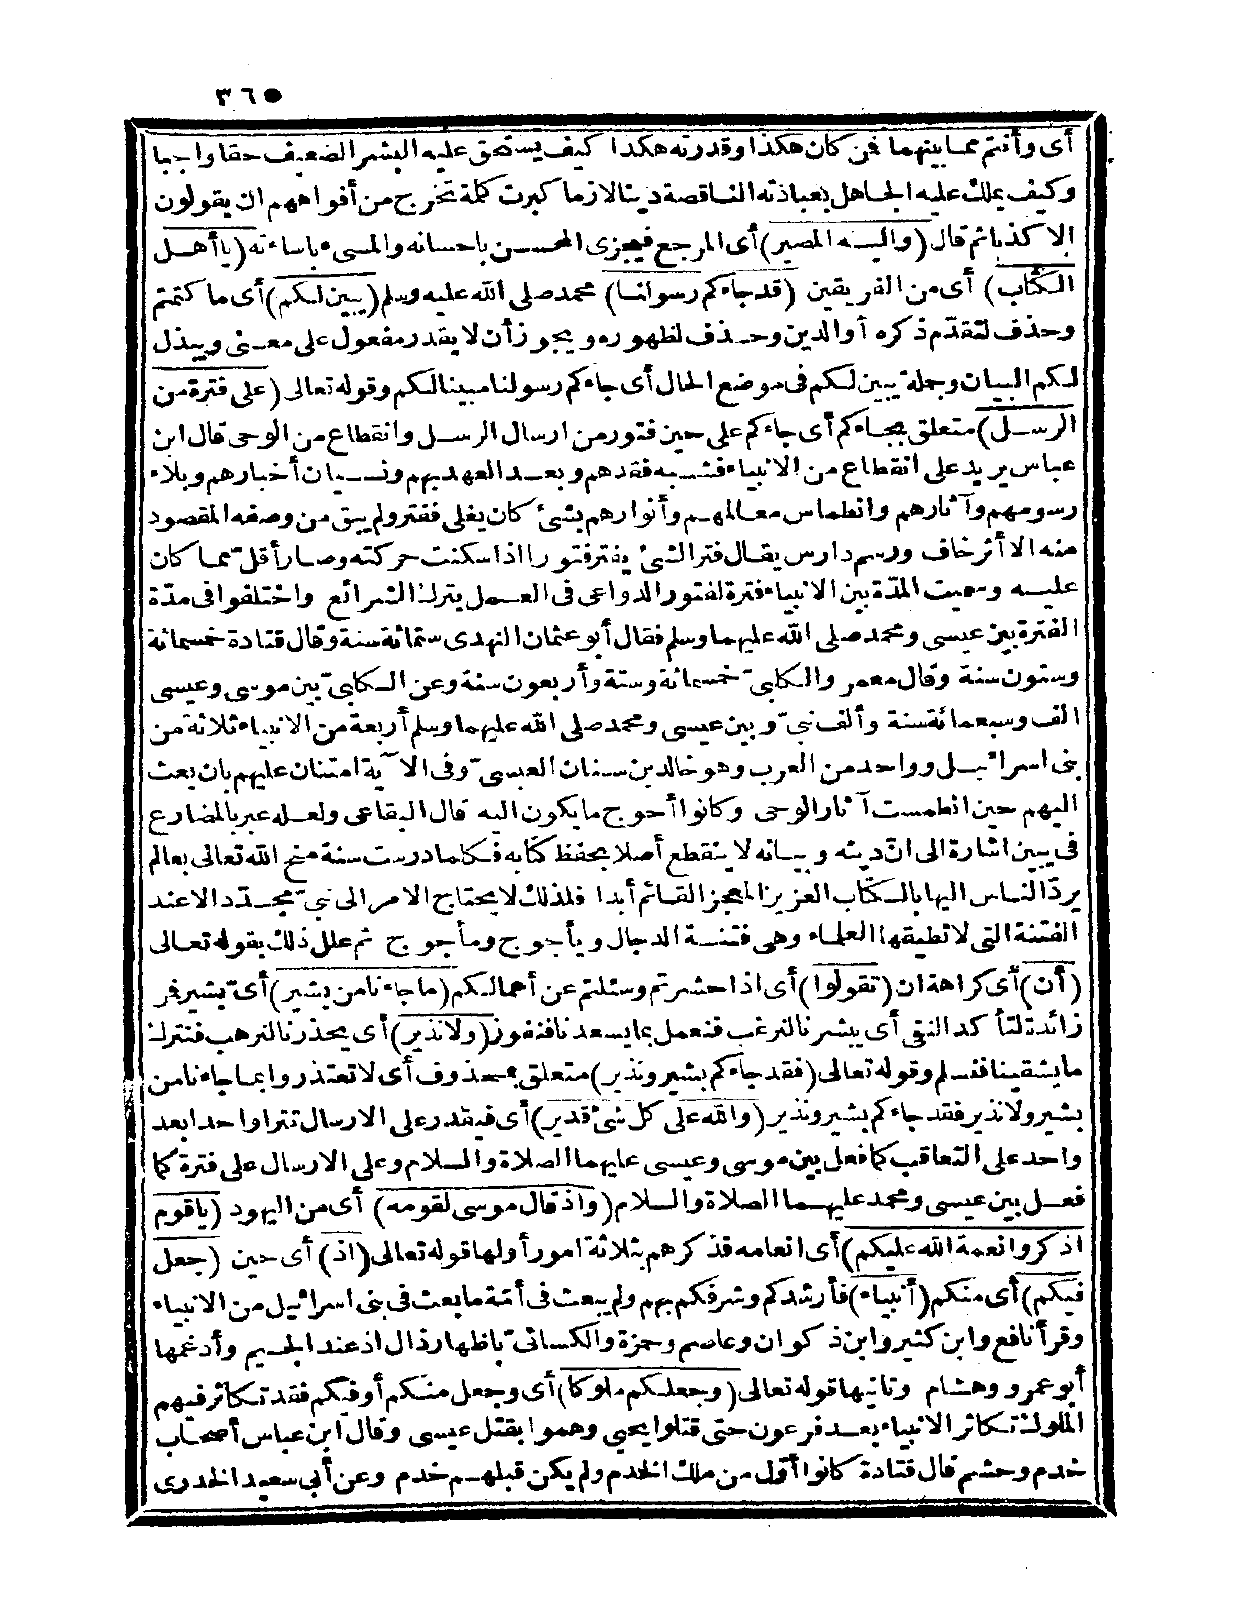 ٣٦٥
أى وأنتم مما بينهما فمن كان هكذا وقدرته هكذا كيف يستحق عليه البشر الضعيف حقا واجبا
وكيف يملك عليه الجاهل بعبادته الناقصة دينا لازما كبرت كلمة تخرج من أفواههم ان يقولون
الا كذبا ثم قال (واليه المصير) أى المرجع فيجزى المحسن باحسانه والمسىء باساءته (يا أهل
الكتاب) أى من الفريقين (قد جاءكم رسولنا) محمد صلى الله عليه وسلم (يبين لكم) أى ما كتمتم
وحذف لتقدّم ذكره أو الدين وحذف لظهوره ويجوز أن لا يقدر مفعول على معنى ويبذل
لكم البيان وجملة يبين لكم فى موضع الحال أى جاءكم رسولنا مبينا لكم وقوله تعالى (على فترة من
الرسل) متعلق بجاءكم أى جاءكم على حين فتور من ارسال الرسل وانقطاع من الوحى قال ابن
عباس يريد على انقطاع من الانبياء فشبه فقدهم وبعد العهد بهم ونسيان أخبارهم وبلاء
رسومهم وآثارهم وانطماس معالمهم وأنوارهم بشئ كان يغلى ففتر ولم يبق من وصفه المقصود
منه الا أثر خاف ورسم دارس يقال فتر الشئ يفتر فتورا اذا سكنت حركته وصار أقل مما كان
عليه وسميت المدّة بين الانبياء فترة لفتور الدواعى فى العمل بترك الشرائع واختلفوا فى مدّة
الفترة بين عيسى ومحمد صلى الله عليهما وسلم فقال أبو عثمان النهدى ستمائة سنة وقال قتادة خمسمائة
وستون سنة وقال معمر والكلبى خمسمائة وستة وأربعون سنة وعن الكلبى بين موسى وعيسى
الف وسبعمائة سنة وألف نبى وبين عيسى ومحمد صلى الله عليهما وسلم أربعة من الانبياء ثلاثة من
بنى اسرائيل وواحد من العرب وهو خالد بن سنان العبسى وفى الآية امتنان عليهم بان بعث
اليهم حين انطمست آثار الوحى وكانوا أحوج ما يكون اليه قال البقاعى ولعله عبر بالمضارع
فى يبين اشارة الى انّ دينه وبيانه لا ينقطع أصلا بحفظ كتابه فكلما درست سنة منح الله تعالى بعالم
يردّ الناس اليها بالكتاب العزيز المعجز القائم أبدا فلذلك لا يحتاج الامر الى نبى مجدّد الا عند
الفتنة التى لا تطيقها العلماء وهى فتنة الدجال ويأجوج ومأجوج ثم علل ذلك بقوله تعالى
(أن) أى كراهة ان (تقولوا) أى اذا حشرتم وسئلتم عن أعمالكم (ما جاءنا من بشير) أى بشير فمن
زائدة لتأكد النفى أى يبشرنا لنرغب فنعمل بما يسعدنا فنفوز (ولا نذير) أى يحذرنا لنرهب فنترك
ما يشقينا فنسلم وقوله تعالى (فقد جاءكم بشير ونذير) متعلق بمحذوف أى لا تعتذروا بما جاءنا من
بشير ولا نذير فقد جاءكم بشير ونذير (والله على كل شئ قدير) أى فيقدر على الارسال تترا واحدا بعد
واحد على التعاقب كما فعل بين موسى وعيسى عليهما الصلاة والسلام وعلى الارسال على فترة كما
فعل بين عيسى ومحمد عليهما الصلاة والسلام (واذ قال موسى لقومه) أى من اليهود (يا قوم
اذكروا نعمة الله عليكم) أى انعامه فذكرهم بثلاثة أمور أولها قوله تعالى (اذ) أى حين (جعل
فيكم) أى منكم (أنبياء) فأرشدكم وشرفكم بهم ولم يبعث فى أمّة ما بعث فى بنى اسرائيل من الانبياء
وقرأ نافع وابن كثير وابن ذكوان وعاصم وحمزة والكسائى باظهار ذال اذ عند الجيم وأدغمها
أبو عمرو وهشام وثانيها قوله تعالى (وجعلكم ملوكا) أى وجعل منكم أو فيكم فقد تكاثر فيهم
الملوك تكاثر الانبياء بعد فرعون حتى قتلوا يحيى وهموا بقتل عيسى وقال ابن عباس أصحاب
خدم وحشم قال قتادة كانوا أوّل من ملك الخدم ولم يكن قبلهم خدم وعن أبى سعيد الخدرى